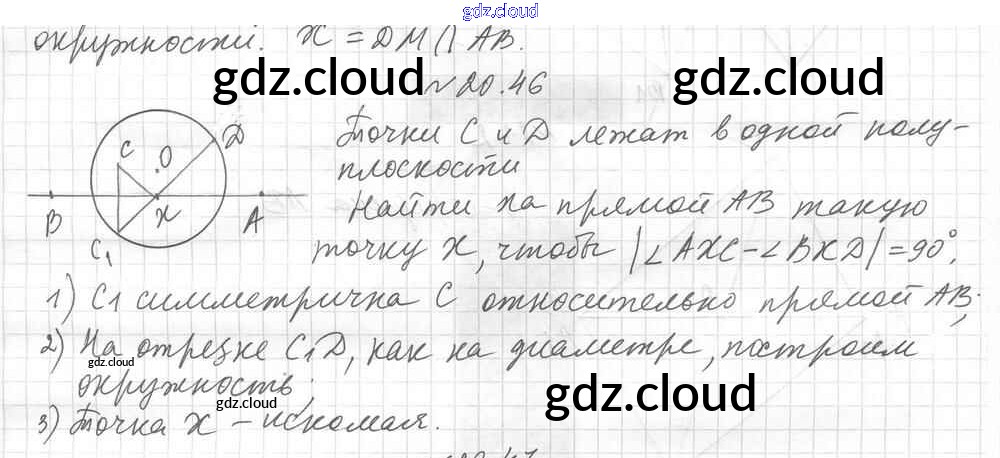 gdz.cloud
окружности. X = DM ∩ AB.
gdz.cloud gdz.cloud
№ 20.46
Точки C и D лежат в одной полу-
плоскости
Найти на прямой AB такую
точку X, чтобы |∠AXC - ∠BXD| = 90°.
C O D
B X A
C₁
1) C1 симметрична C относительно прямой AB;
2) На отрезке C₁D, как на диаметре, построим
окружность;
gdz.cloud
gdz.cloud gdz.cloud
3) Точка X - искомая.